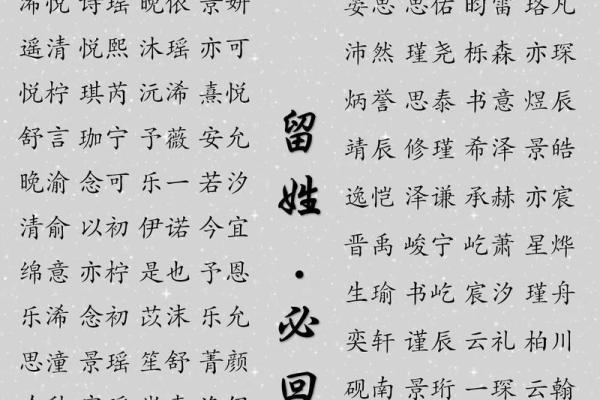 浠悦 诗瑶 晚依 景妍
遥清 悦熙 沐瑶 亦可
悦柠 琪芮 沅浠 熹悦
舒言 珈宁 予薇 安允
晚渝 念可 乐一 若汐
清俞 以初 伊诺 今宜
绵意 亦柠 是也 予恩
乐浠 念初 苡沫 乐允
思潼 景瑶 笙舒 菁颜
留姓·必回
思佑 昀雷 珞凡
沛然 瑾尧 栎森 亦琛
炳誉 思泰 书意 煜辰
靖辰 修瑾 希泽 景皓
逸恺 泽谦 承赫 亦宸
晋禹 峻宁 屹萧 星烨
生瑜 书屹 宸汐 瑾舟
奕轩 谨辰 云礼 柏川
砚南 景珩 一琛 云翰